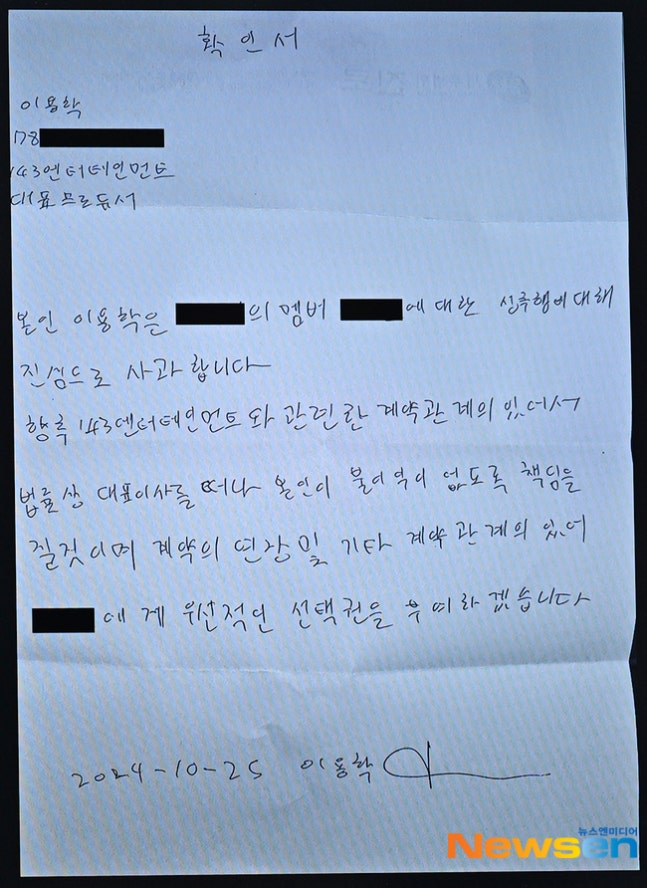 확인서
이용학
178
143엔터테인먼트
대표프로듀서
본인 이용학은 의 멤버 에 대한 성추행에 대해
진심으로 사과 합니다
향후 143엔터테인먼트와 관련한 계약관계의 있어서
법률상 대표이사를 떠나 본인이 불이익이 없도록 책임을
질것이며 계약의 연장 및 기타 계약 관계의 있어
에게 우선적인 선택권을 부여하겠습니다
2024-10-25 이용학
뉴스엔미디어
Newsen